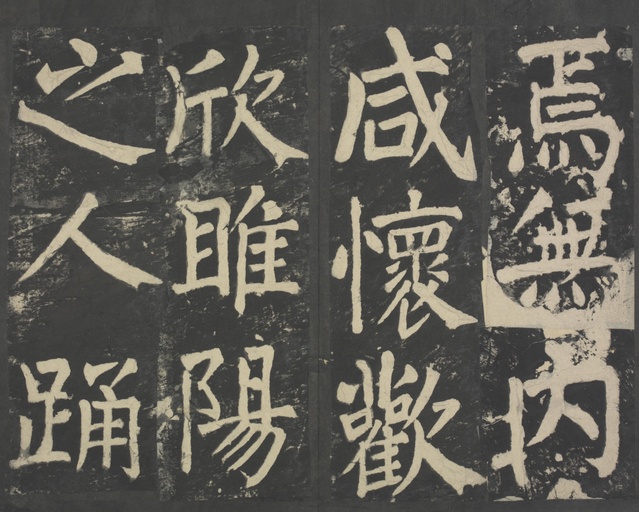 焉無内
咸懷歡
欣睢陽
之人踊